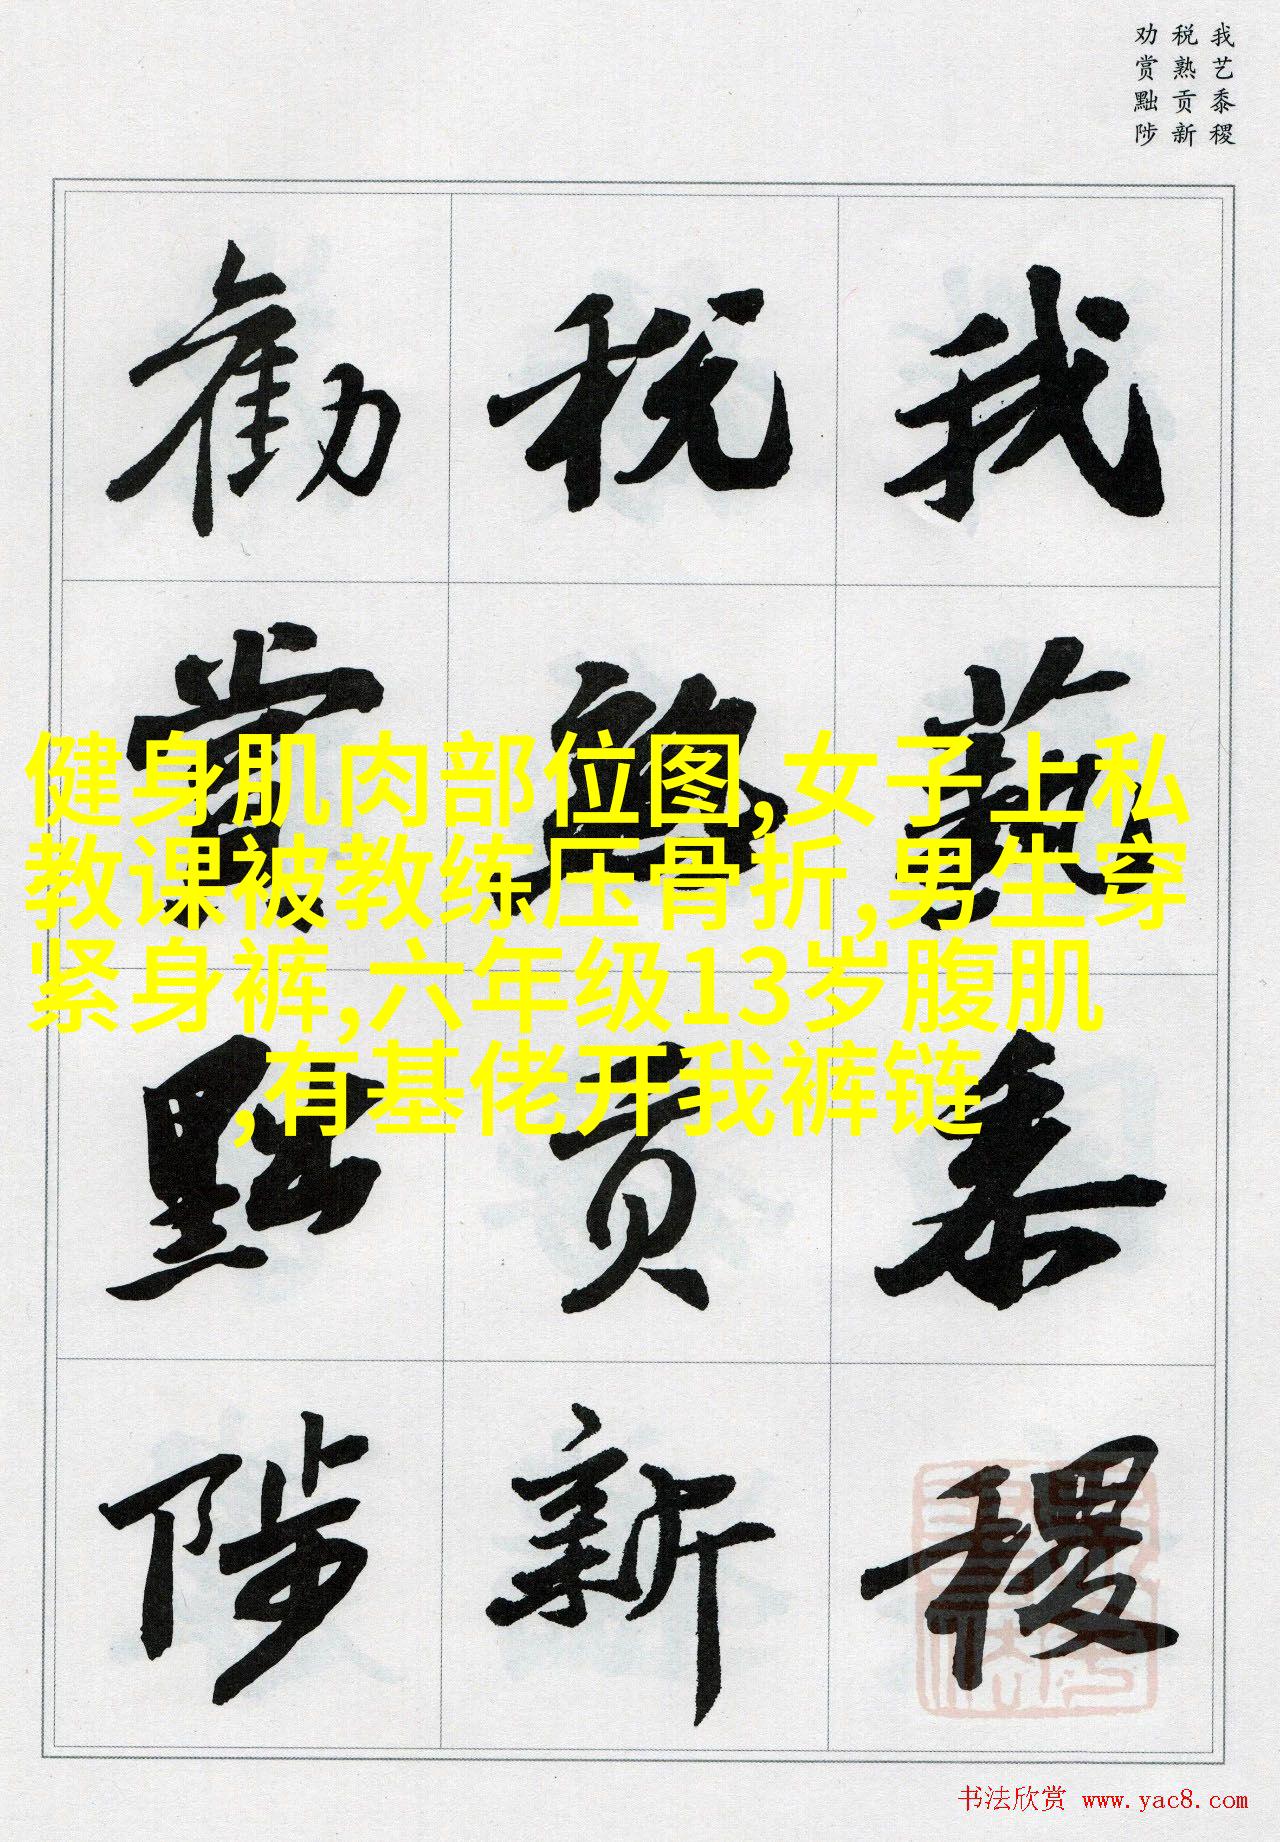 我艺黍稷
税熟贡新
劝赏黜陟
我藝黍稷
稅熟貢新
勸賞黜陟
健身肌肉部位图,女子上私
教课被教练压骨折,男生穿
紧身裤,六年级13岁腹肌
,有基佬开我裤链
书法欣赏 www.yac8.com